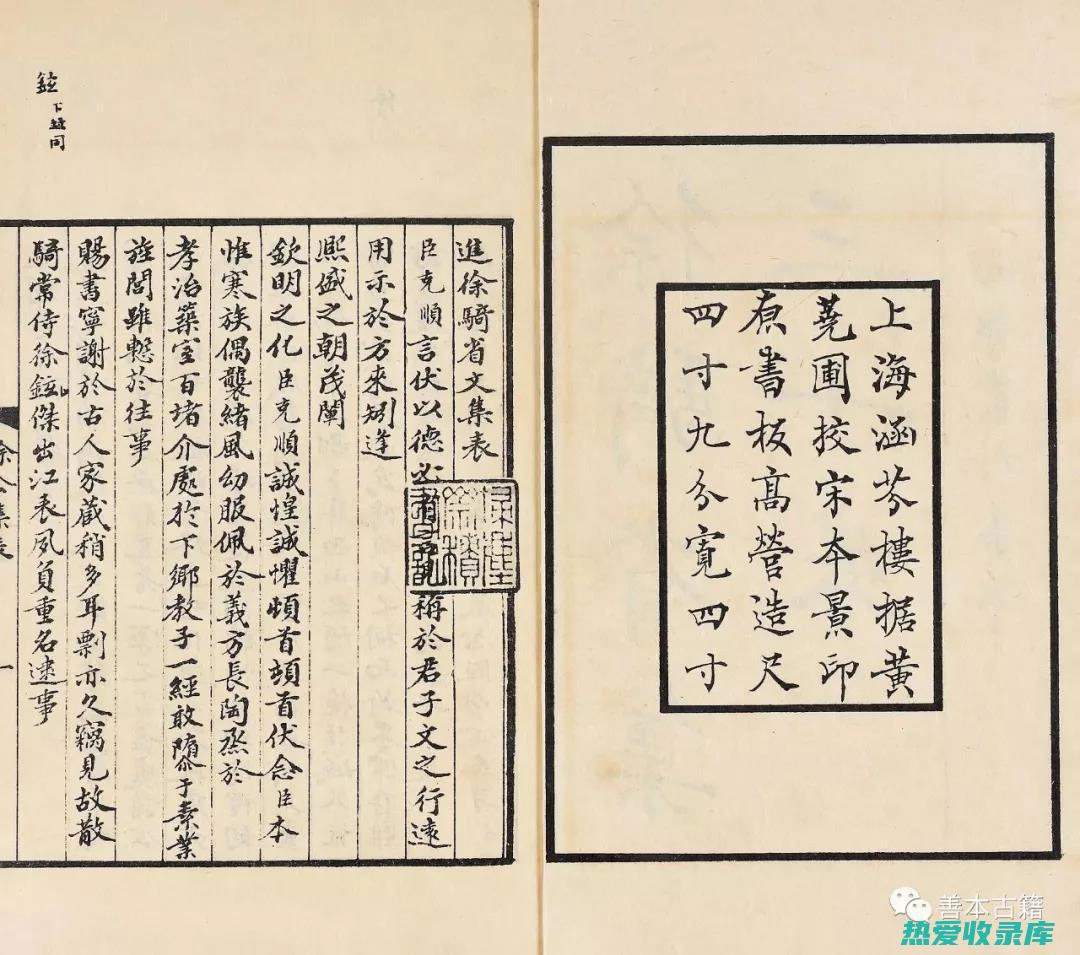 上海涵芬樓据黃
蕘圃挍宋本景印
原書板高營造尺
四寸九分寬四寸
進徐騎省文集表
臣克順言伏以德必稱於君子文之行遠
用示於方來矧逢
熈盛之朝茂闡
欽明之化臣克順誠惶誠懼頓首頓首伏念臣本
惟寒族偶襲緒風幼服佩於義方長陶烝於
孝治築室百堵介處於下鄉教子一經敢隳于素業
旌閭雖慙於往事
賜書寧謝於古人家藏稍多耳剽亦久竊見故散
騎常侍徐鉉傑出江表夙負重名逮事
鉉下並同
徐公集表
一
善本古籍
热爱收录库